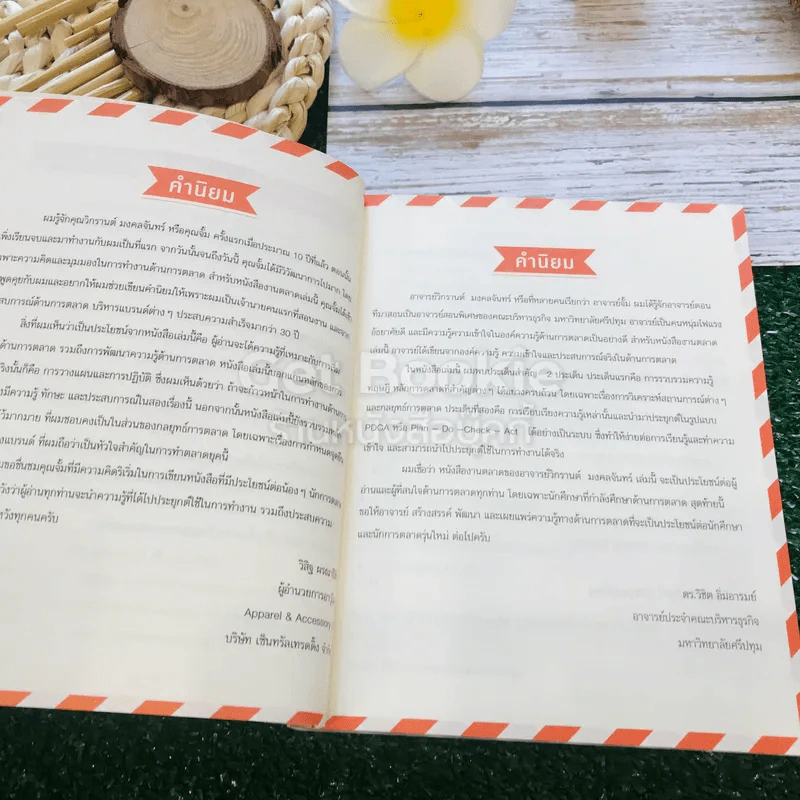 คำนิยม
ผมรู้จักคุณวิกรานต์ มงคลจันทร์ หรือคุณจั้ม ครั้งแรกเมื่อประมาณ 10 ปีที่แล้ว ตอนนั้น
เพิ่งเรียนจบและมาทำงานกับผมเป็นที่แรก จากวันนั้นจนถึงวันนี้ คุณจั้มได้มีวิวัฒนาการไปมาก โดย
เฉพาะความคิดและมุมมองในการทำงานด้านการตลาด สำหรับหนังสืองานตลาดเล่มนี้ คุณจั้มได้
พูดคุยกับผมและอยากให้ผมช่วยเขียนคำนิยมให้เพราะผมเป็นเจ้านายคนแรกที่สอนงาน
ประสบการณ์ด้านการตลาด บริหารแบรนด์ต่าง ๆ ประสบความสำเร็จมากว่า 30 ปี
สิ่งที่ผมเห็นว่าเป็นประโยชน์จากหนังสือเล่มนี้คือ ผู้อ่านจะได้ความรู้ที่เหมาะกับการ
ตลาด รวมถึงการพัฒนาความรู้ด้านการตลาด หนังสือเล่มนี้
นั้นก็คือ การวางแผนและการปฏิบัติ ซึ่งผมเห็นด้วยว่า ถ้าจะก้าวหน้าในการทำงานด้าน
มีความรู้ ทักษะ และประสบการณ์ในสองเรื่องนี้ นอกจากนั้นหนังสือเล่มนี้ยังรวบรวม
ไว้มากมาย ที่ผมชอบคงเป็นในส่วนของกลยุทธ์การตลาด โดยเฉพาะเรื่องการกำหนด
แบรนด์ ที่ผมถือว่าเป็นหัวใจสำคัญในการทำตลาดยุคนี้
ขอชื่นชมคุณจั้มที่มีความคิดริเริ่มในการเขียนหนังสือที่มีประโยชน์ต่อน้อง ๆ นักการตลาด
หวังว่าผู้อ่านทุกท่านจะนำความรู้ที่ได้ไปประยุกต์ใช้ในการทำงาน รวมถึงประสบความ
หวังทุกคนครับ
วิสิฐ
ผู้อำนวยการ
Apparel & Accessory
บริษัท เซ็นทรัลเทรดดิ้ง จำกัด
คำนิยม
อาจารย์วิกรานต์ มงคลจันทร์ หรือที่หลายคนเรียกว่า อาจารย์จั้ม ผมได้รู้จักอาจารย์ตอน
ที่มาสอนเป็นอาจารย์สอนพิเศษของคณะบริหารธุรกิจ มหาวิทยาลัยศรีปทุม อาจารย์เป็นคนหนุ่มไฟแรง
อัธยาศัยดี และมีความรู้ความเข้าใจในองค์ความรู้ด้านการตลาดเป็นอย่างดี สำหรับหนังสืองานตลาด
เล่มนี้ อาจารย์ได้เขียนจากองค์ความรู้ ความเข้าใจและประสบการณ์จริงในด้านการตลาด
ในหนังสือเล่มนี้ ผมพบประเด็นสำคัญ 2 ประเด็น ประเด็นแรกคือ การรวบรวมความรู้
ทฤษฎี หลักการตลาดที่สำคัญต่าง ๆ ได้แบบครบถ้วน โดยเฉพาะเรื่องการวิเคราะห์สถานการณ์ต่าง ๆ
และกลยุทธ์การตลาด ประเด็นที่สองคือ การเรียบเรียงความรู้เหล่านั้นและนำมาประยุกต์ในรูปแบบ
PDCA หรือ Plan - Do - Check - Act ได้อย่างเป็นระบบ ซึ่งทำให้ง่ายต่อการเรียนรู้และทำความ
เข้าใจ และสามารถนำไปประยุกต์ใช้ในการทำงานได้จริง
ผมเชื่อว่า หนังสืองานตลาดของอาจารย์วิกรานต์ มงคลจันทร์ เล่มนี้ จะเป็นประโยชน์ต่อผู้
อ่านและผู้ที่สนใจด้านการตลาดทุกท่าน โดยเฉพาะนักศึกษาที่กำลังศึกษาด้านการตลาด สุดท้ายนี้
ขอให้อาจารย์ สร้างสรรค์ พัฒนา และเผยแพร่ความรู้ทางด้านการตลาดที่จะเป็นประโยชน์ต่อนักศึกษา
และนักการตลาดรุ่นใหม่ ต่อไปครับ
ดร.วิชิต อิ่มอารมย์
อาจารย์ประจำคณะบริหารธุรกิจ
มหาวิทยาลัยศรีปทุม
Get Bookie
ร้านหนังสือมือสอง